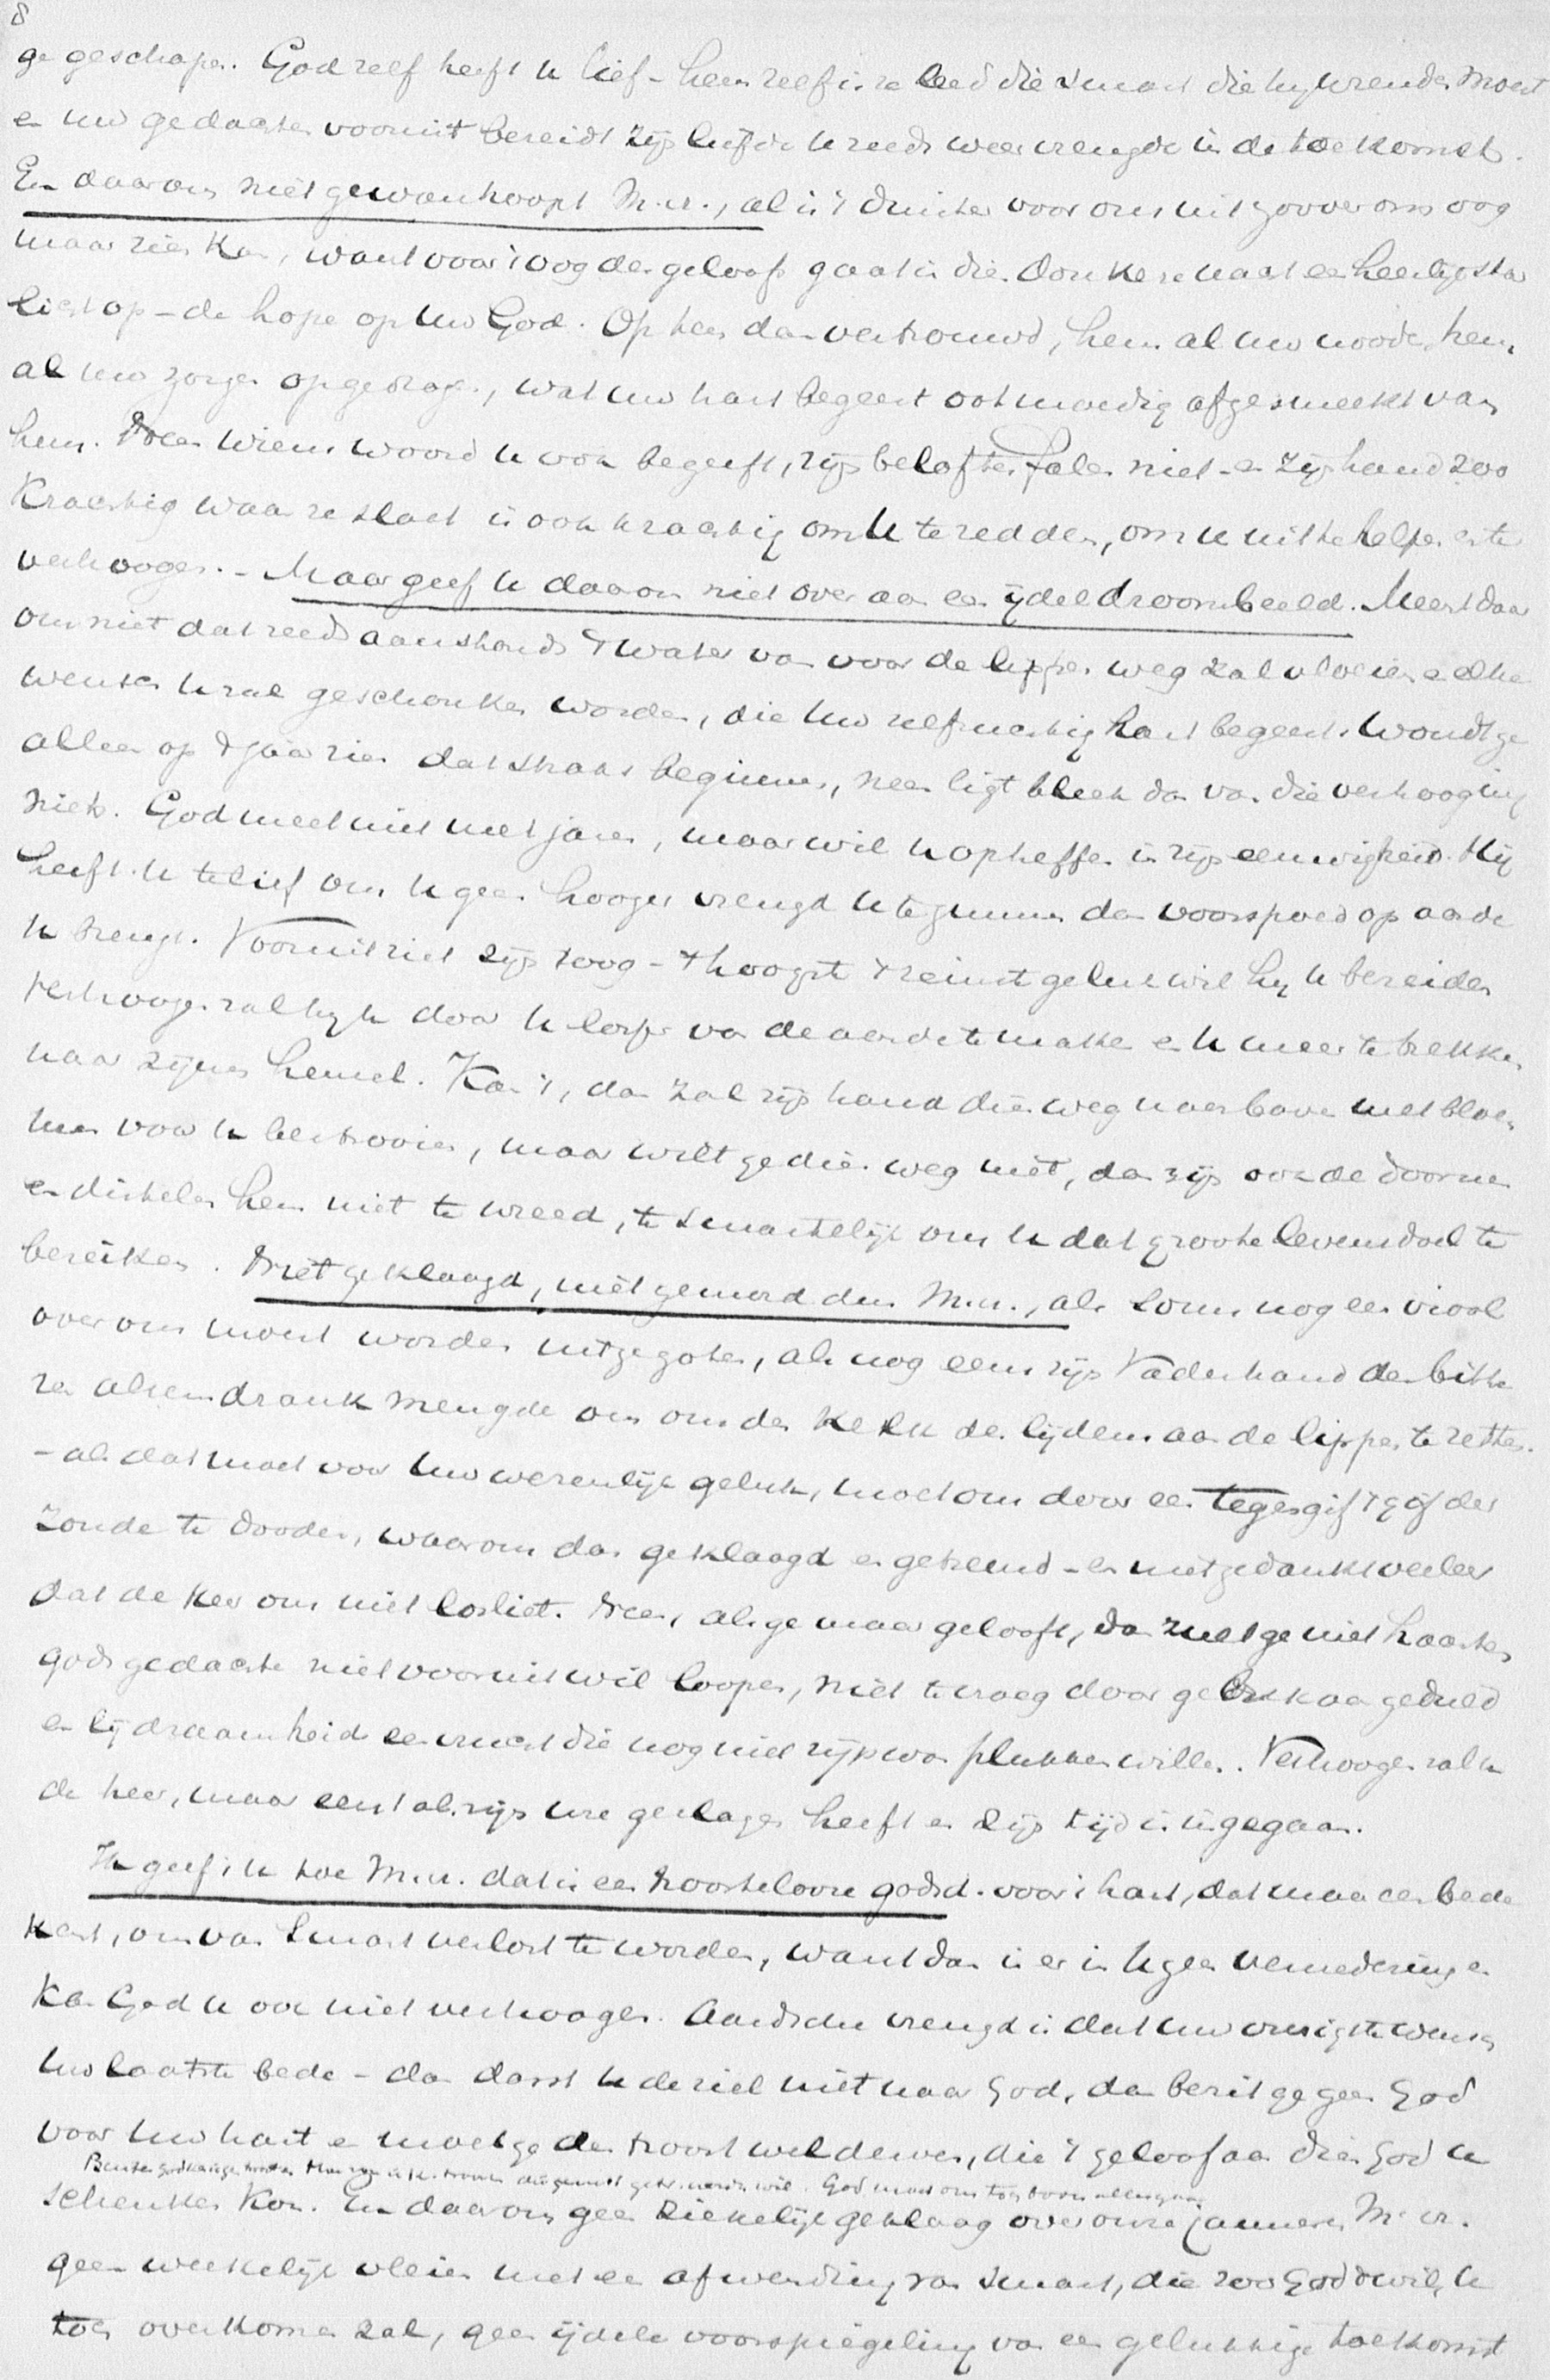 8
ge geschapen. God zelf heeft u lief – hem zelf is ze leed die smart die hij wenden moest
en uw gedachten vooruit bereidt zijn liefde u reeds weer vreugde in de toekomst.
En daarom niet gewanhoopt M. vr., al is 't duister voor ons uit zoover ons oog
maar zien kan, want voor 't oog des geloofs gaat in die donkere nacht een heerlijk ster
licht op – de hope op uw God. Op hem dan vertrouwd, hem al uw nooden, hem
al uw zorgen opgedragen, wat uw hart begeert ootmoedig afgesmeekt van
hem. Neen wiens woord u ook begeeft, zijn beloften falen niet – en zijn hand zoo
krachtig waar ze slaat is ook krachtig om u te redden, om u uit te helpen en te
verhoogen. – Maar geef u daarom niet over aan een ijdel droombeeld. Meent daar
om niet dat reeds aanstonds 't water van voor de lippen weg zal vloeien en elke
wensch u zal geschonken worden, die uw zelfzuchtig hart begeert. Woudt ge
alleen op 't jaar zien dat straks begint, neen ligt bleek dan van die verhooging
niets. God meet niet met jaren, maar wil u opheffen in zijn eeuwigheid. Hij
heeft u te lief om u geen hooger vreugd u te gunnen dan voorspoed op aarde
u brengt. Vooruit ziet zijn oog – 't hoogst 't reinst geluk wil hij u bereiden
verhoogen zal hij u door u los van de aarde te maken en u meer te trekken
naar zijnen hemel. Kan 't, dan zal zijn hand dien weg naar boven met bloe-
men voor u bestrooien, maar wilt ge dien weg niet, dan zijn ook de doornen
en distelen hem niet te wreed, te smartelijk om u dat groote levensdoel te
bereiken. Niet geklaagd, niet gemord dus M. vr., als soms nog een viool
over ons moest worden uitgegoten, als nog eens zijn Vaderhand den bitte-
ren alsemdrank mengde om ons den kelk des lijdens aan de lippen te zetten.
– als dat moet voor uw wezenlijk geluk, moet om door een tegengif 't gif der
zonde te dooden, waarom dan geklaagd en getreurd – en niet gedankt veeleer
dat de heer ons niet losliet. Neen, als ge maar gelooft, dan zult ge niet haasten
gods gedachte niet vooruit wil loopen, niet te vroeg door gebrek aan geduld
en lijdzaamheid een vrucht die nog niet rijp was plukken willen. Verhoogen zal u
de heer, maar eerst als zijn ure geslagen heeft en zijn tijd is ingegaan.
Ik geef 't u toe M. vr. dat is een troostelooze godsd. voor 't hart, dat maar een bede
kent, om van smart verlost te worden, want dan is er in u geen vernedering en
kan God u ook niet verhoogen. Aardsche vreugd is dat uw vurigste wensch
uw laatste bede – dan dorst u de ziel niet naar God, dan bezit ge geen God
voor uw hart en moet ge den troost wel derven, die 't geloof aan dien God u
schenken kon. En daarom geen ziekelijk geklaag over onze jammeren M. vr.
geen weekelijk vleien met een afwending van smart, die zoo God 't wil, u
toch overkomen zal, geen ijdele voorspiegeling van een gelukkige toekomst